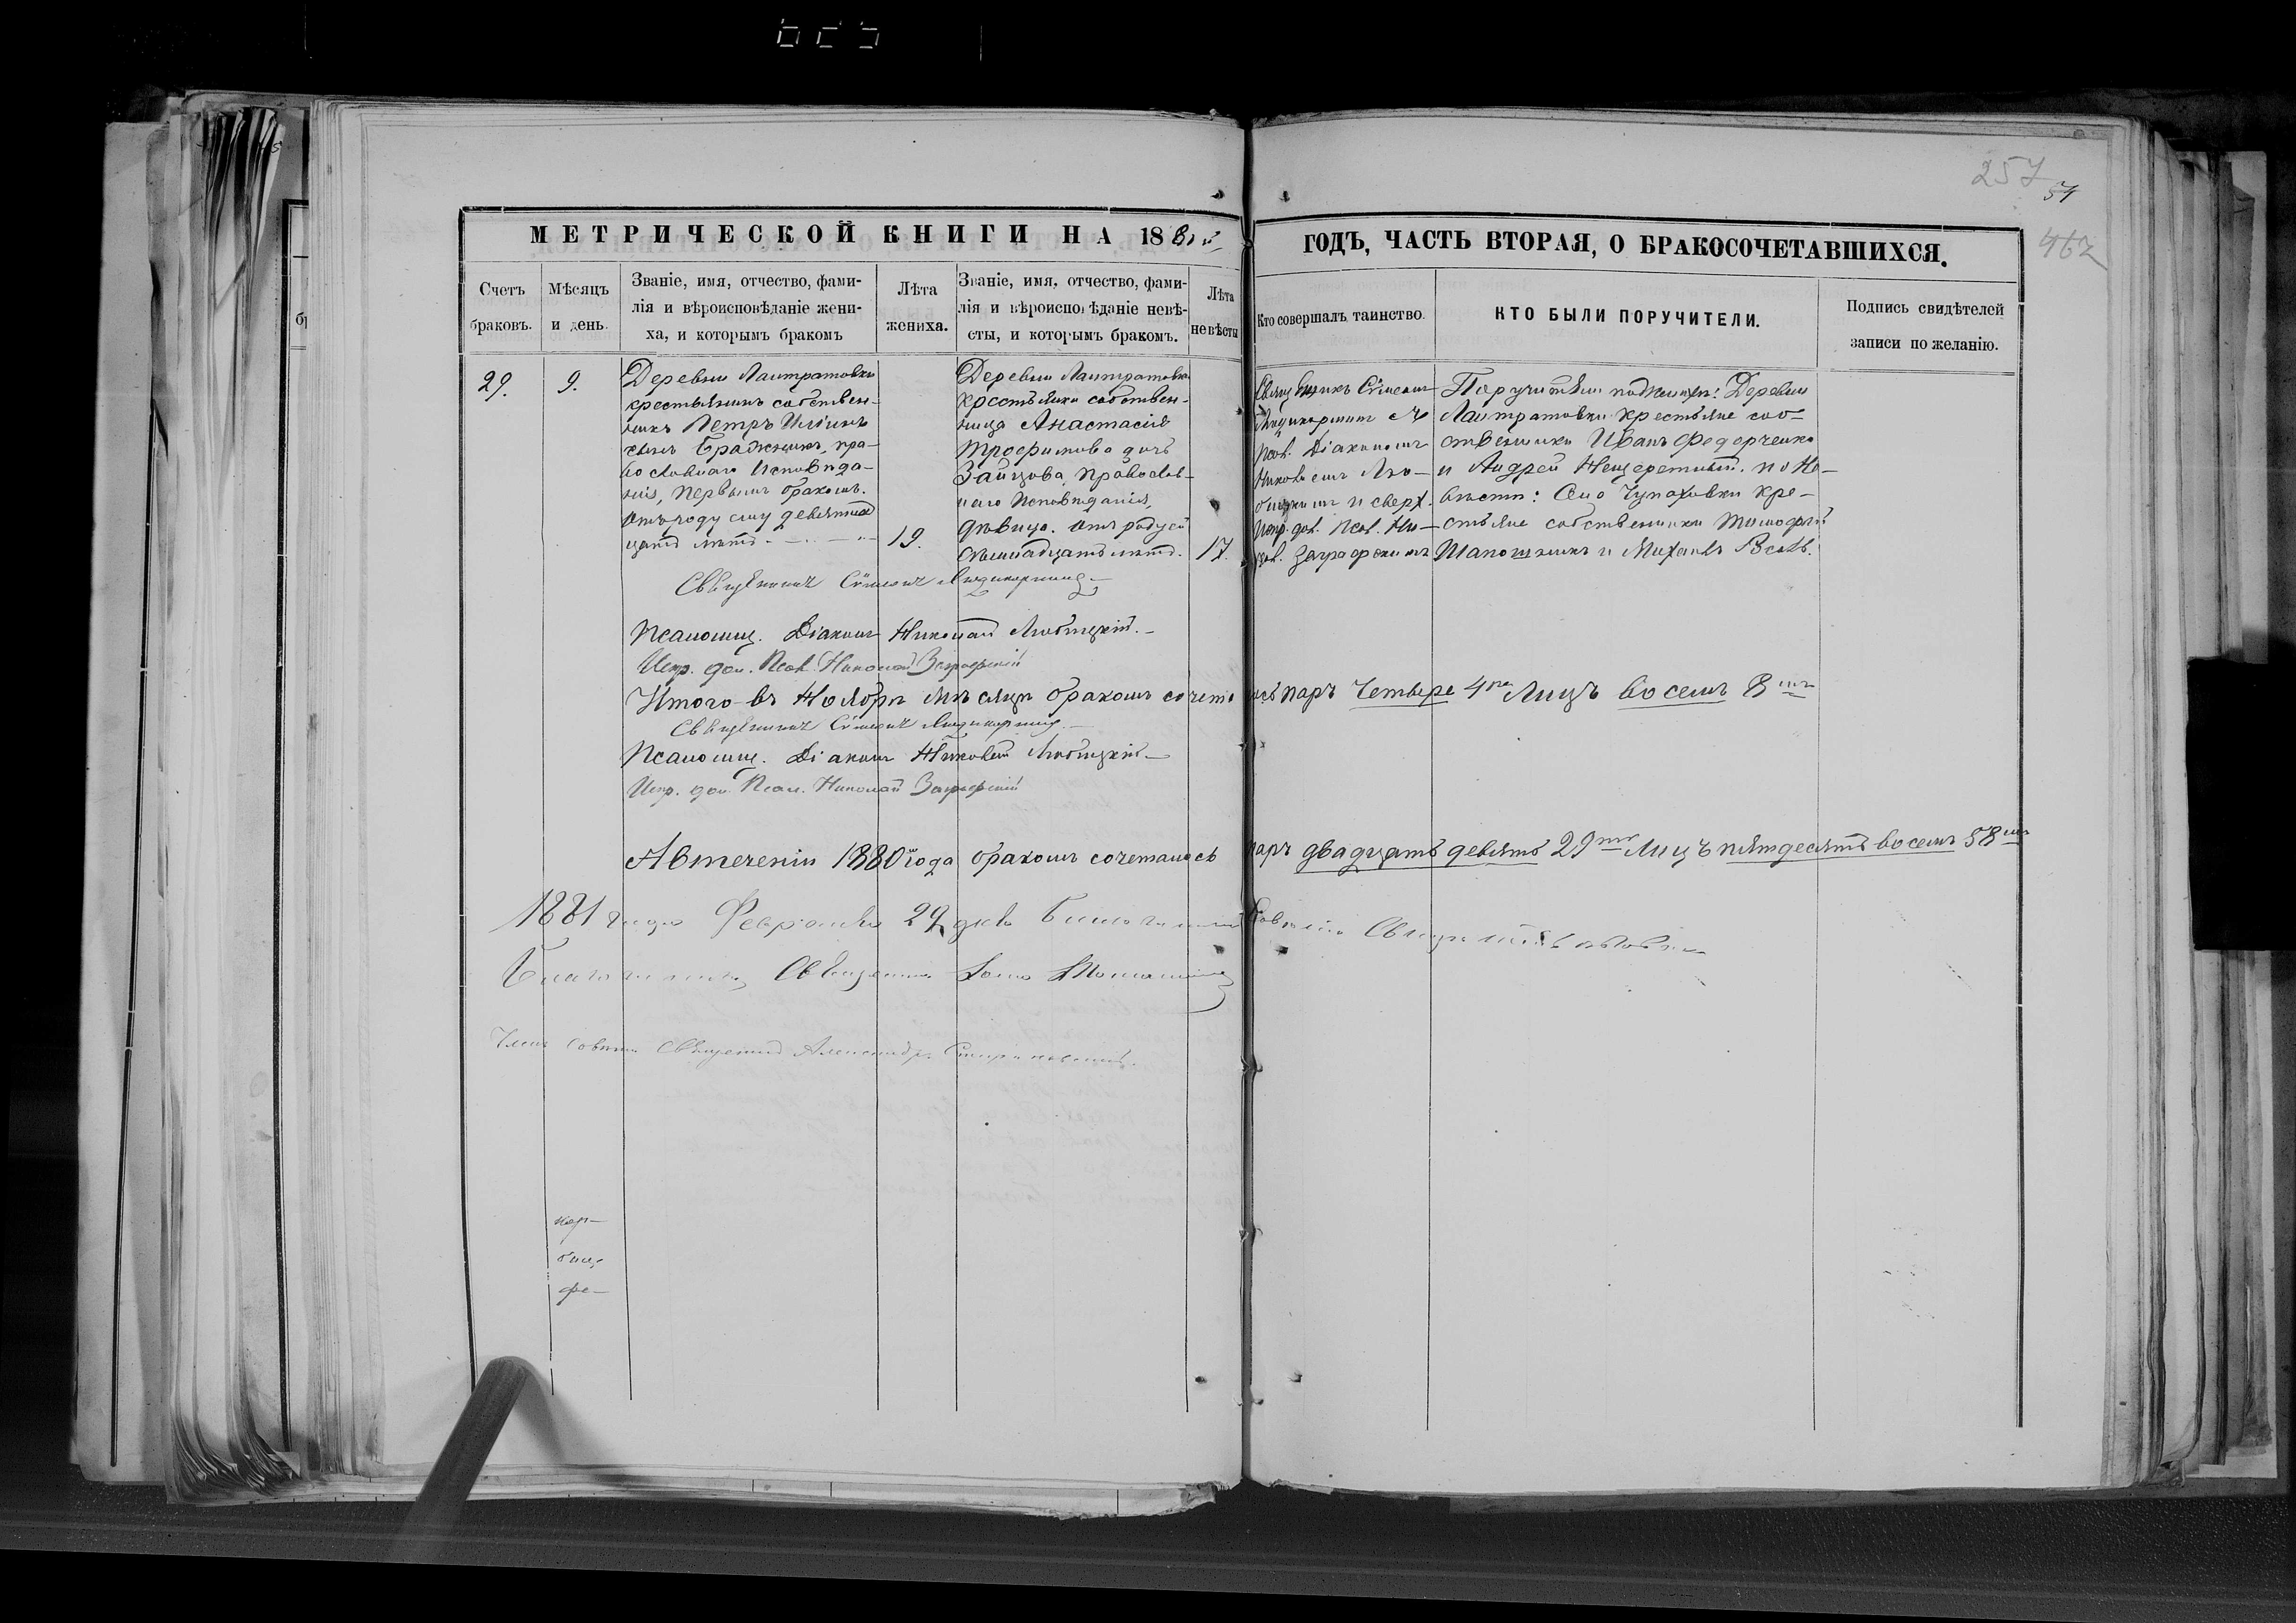 257
51
462
МЕТРИЧЕСКОЙ КНИГИ НА 1880й
ГОДЪ, ЧАСТЬ ВТОРАЯ, О БРАКОСОЧЕТАВШИХСЯ.
Счетъ браковъ.
Мѣсяцъ и день.
Званіе, имя, отчество, фами-
лія и вѣроисповѣданіе жени-
ха, и которымъ бракомъ
Лѣта жениха.
Званіе, имя, отчество, фами-
лія и вѣроисповѣданіе невѣ-
сты, и которымъ бракомъ.
Лѣта невѣсты
Кто совершалъ таинство.
КТО БЫЛИ ПОРУЧИТЕЛИ.
Подпись свидѣтелей
записи по желанію.
29.
9.
Деревни Лантратовки
крестьянинъ собствен-
никъ Петръ
сынъ Бражникъ, пра-
вославнаго исповѣда-
нія, первымъ бракомъ.
Отъ роду ему девятнад
цать лѣтъ
19.
Деревни Лантратовки
крестьянка собствен-
ница Анастасія
Трофимова дочь
Зайцова, православ-
наго исповѣданія,
дѣвица. Отъ роду ей
семнадцать лѣтъ.
17.
Священникъ Сѵмеонъ
съ
псал. Діакономъ
Николаемъ Лю-
бицкимъ и сверх.
испр. дол. псал. Ни-
кол. Заграфскимъ
Поручители по женихѣ: Деревни
Лантратовки крестьяне соб-
ственники Иванъ Федорченко
и Андрей Нещеретный. по не-
вѣстѣ: Села Чупаховки кре-
стьяне собственники Тимофей
Шапошникъ и Михаилъ
Священникъ Сѵмеонъ
Псаломщ. Діаконъ Николай Любицкій.
Испр. дол. Псал. Николай Заграфскій
Итого въ Ноябрѣ мѣсяцѣ бракомъ сочеталось паръ Четыре 4ре Лицъ восемъ 8мъ
Священникъ Сѵмеонъ
Псаломщ. Діаконъ Николай Любицкій
Испр. дол. Псал. Николай Заграфскій
А втеченіи 1880го года бракомъ сочеталось паръ двадцать девять 29ть Лицъ пятдесять восемъ 58мъ
1881 года Февраля 29 дня
Благочинный Священникъ
Членъ Совѣта Священникъ Александръ